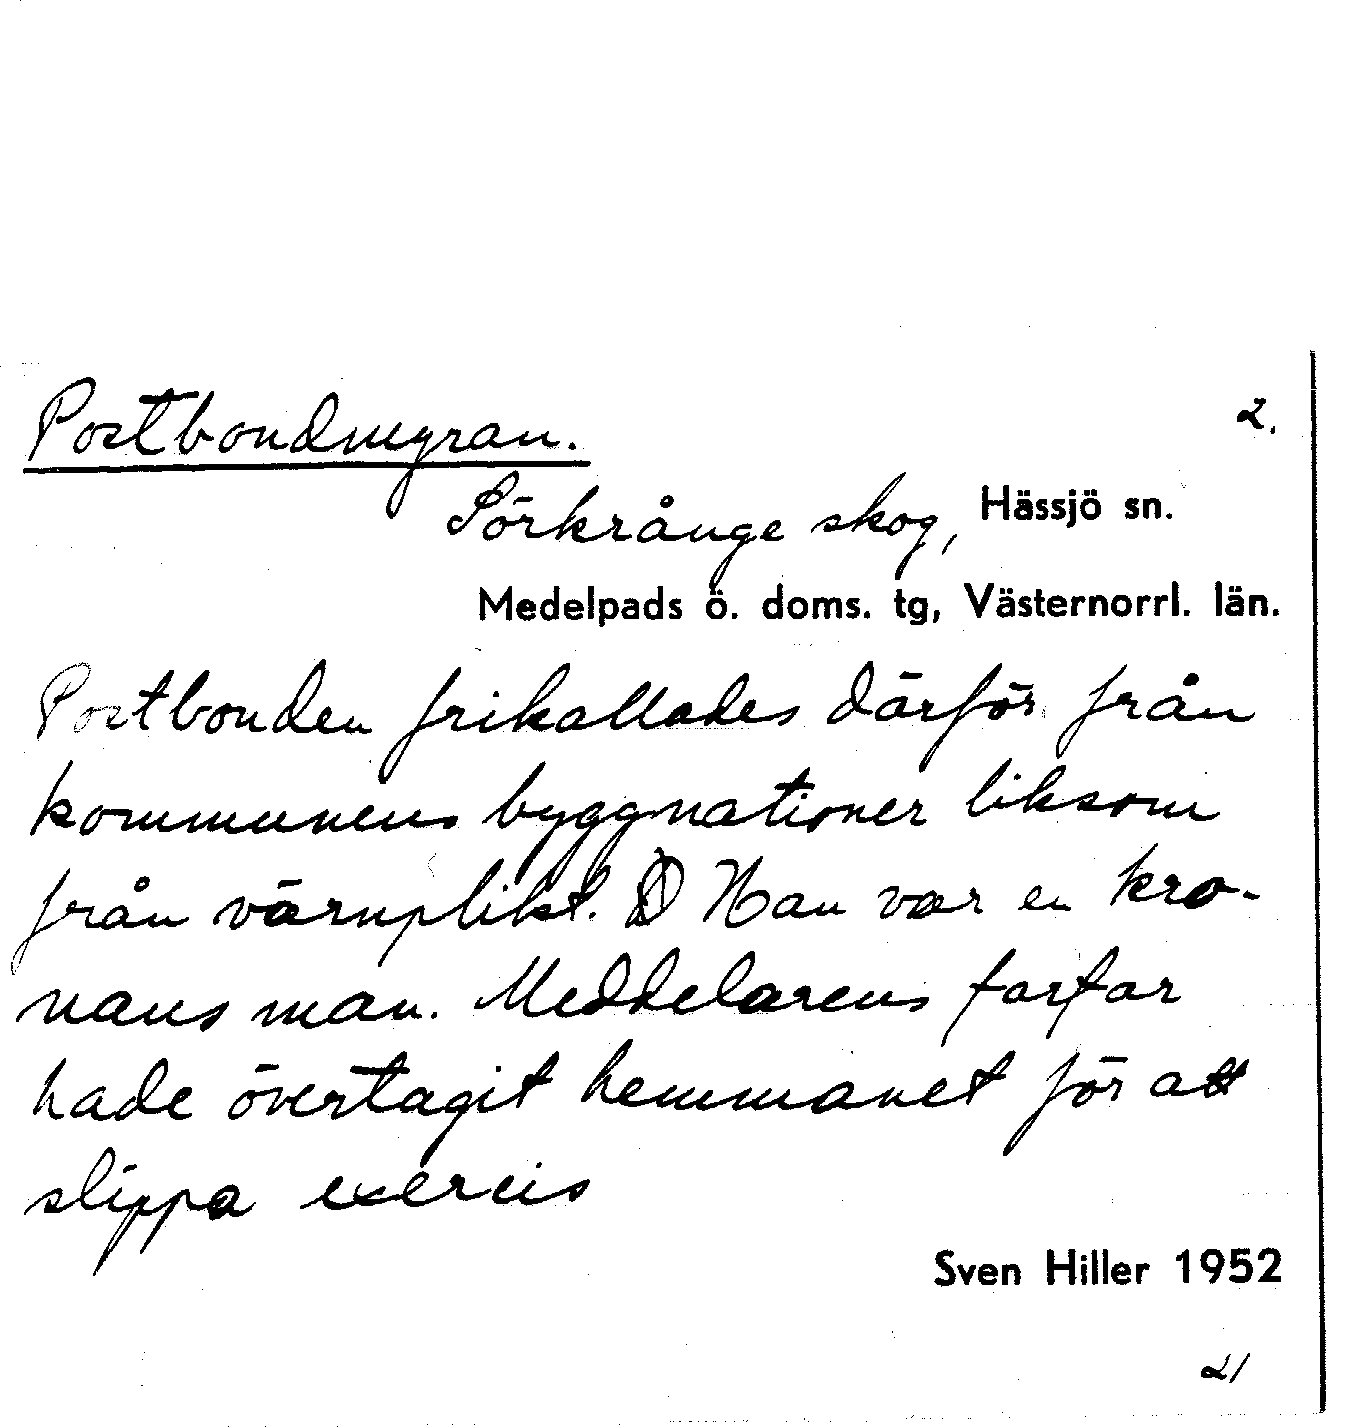 Postbondmyran.
2.
Sörkrånge skog, Hässjö sn.
Medelpads ö. doms. tg, Västernorrl. län.
Postbonden frikallades därför från
kommunens byggnationer liksom
från värnplikt. Han var en kro-
nans man. Meddelarens farfar
hade övertagit hemmanet för att
slippa exercis
Sven Hiller 1952
21